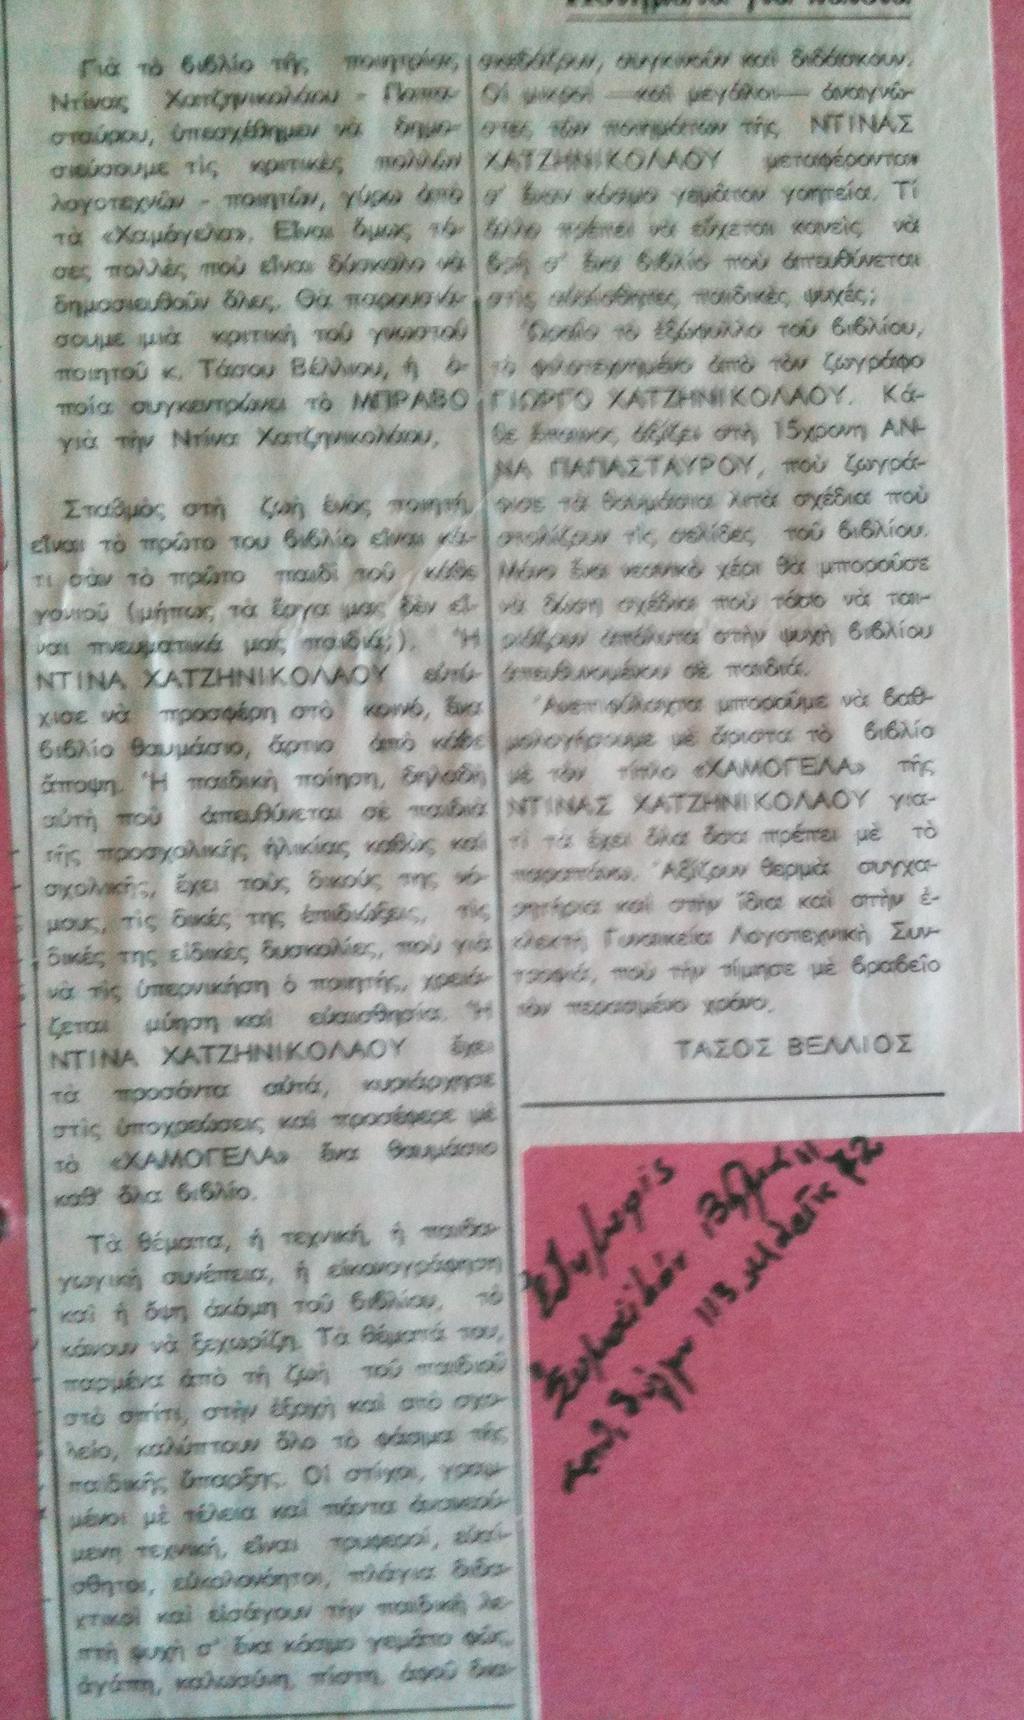 Ποιήματα για παιδιά
Γιὰ τὸ βιβλίο τῆς ποιητρίας
Ντίνας Χατζηνικολάου - Παπα-
σταύρου, ὑπεσχέθημεν νὰ δημο-
σιεύσουμε τὶς κριτικὲς πολλῶν
λογοτεχνῶν - ποιητῶν, γύρω ἀπὸ
τὰ «Χαμόγελα». Εἶναι ὅμως τό-
σες πολλὲς ποὺ εἶναι δύσκολο νὰ
δημοσιευθοῦν ὅλες. Θὰ παρουσιά-
σουμε μιὰ κριτικὴ τοῦ γνωστοῦ
ποιητοῦ κ. Τάσου Βέλλιου, ἡ ὁ-
ποία συγκεντρώνει τὸ ΜΠΡΑΒΟ
γιὰ τὴν Ντίνα Χατζηνικολάου.
Σταθμὸς στὴ ζωὴ ἑνὸς ποιητῆ
εἶναι τὸ πρῶτο του βιβλίο εἶναι κά-
τι σὰν τὸ πρῶτο παιδὶ τοῦ κάθε
γονιοῦ (μήπως τὰ ἔργα μας δὲν εἶ-
ναι πνευματικά μας παιδιά;). Ἡ
ΝΤΙΝΑ ΧΑΤΖΗΝΙΚΟΛΑΟΥ εὐτύ-
χισε νὰ προσφέρη στὸ κοινό, ἕνα
βιβλίο θαυμάσιο, ἄρτιο ἀπὸ κάθε
ἄποψη. Ἡ παιδικὴ ποίηση, δηλαδὴ
αὐτὴ ποὺ ἀπευθύνεται σὲ παιδιὰ
τῆς προσχολικῆς ἡλικίας καθὼς καὶ
σχολικῆς, ἔχει τοὺς δικούς της νό-
μους, τὶς δικές της ἐπιδιώξεις, τὶς
δικές της εἰδικὲς δυσκολίες, ποὺ γιὰ
νὰ τὶς ὑπερνικήση ὁ ποιητής, χρειά-
ζεται μύηση καὶ εὐαισθησία. Ἡ
ΝΤΙΝΑ ΧΑΤΖΗΝΙΚΟΛΑΟΥ ἔχει
τὰ προσόντα αὐτά, κυριάρχησε
στὶς ὑποχρεώσεις καὶ προσέφερε μὲ
τὸ «ΧΑΜΟΓΕΛΑ» ἕνα θαυμάσιο
καθ' ὅλα βιβλίο.
Τὰ θέματα, ἡ τεχνική, ἡ παιδα-
γωγικὴ συνέπεια, ἡ εἰκονογράφηση
καὶ ἡ ὄψη ἀκόμη τοῦ βιβλίου, τὸ
κάνουν νὰ ξεχωρίζη. Τὰ θέματά του,
παρμένα ἀπὸ τὴ ζωὴ τοῦ παιδιοῦ
στὸ σπίτι, στὴν ἐξοχὴ καὶ στὸ σχο-
λεῖο, καλύπτουν ὅλο τὸ φάσμα τῆς
παιδικῆς ὕπαρξης. Οἱ στίχοι, γραμ-
μένοι μὲ τέλεια καὶ πάντα ἀνανεού-
μενη τεχνική, εἶναι τρυφεροί, εὐαί-
σθητοι, εὐκολονόητοι, πλάγια διδα-
κτικοὶ καὶ εἰσάγουν τὴν παιδικὴ λε-
πτὴ ψυχὴ σ' ἕνα κόσμο γεμάτο φῶς,
ἀγάπη, καλωσύνη, πίστη, ἀφοῦ δια-
σκεδάζουν, συγκινοῦν καὶ διδάσκουν.
Οἱ μικροὶ —καὶ μεγάλοι— ἀναγνῶ-
στες τῶν ποιημάτων τῆς ΝΤΙΝΑΣ
ΧΑΤΖΗΝΙΚΟΛΑΟΥ μεταφέρονται
σ' ἕναν κόσμο γεμάτον γοητεία. Τί
ἄλλο πρέπει νὰ εὔχεται κανεὶς νὰ
βρῆ σ' ἕνα βιβλίο ποὺ ἀπευθύνεται
στὶς εὐαίσθητες παιδικὲς ψυχές;
Ὡραῖο τὸ ἐξώφυλλο τοῦ βιβλίου,
τὸ φιλοτεχνημένο ἀπὸ τὸν ζωγράφο
ΓΙΩΡΓΟ ΧΑΤΖΗΝΙΚΟΛΑΟΥ. Κά-
θε ἔπαινος ἀξίζει στὴ 15χρονη ΑΝ-
ΝΑ ΠΑΠΑΣΤΑΥΡΟΥ, ποὺ ζωγρά-
φισε τὰ θαυμάσια λιτὰ σχέδια ποὺ
στολίζουν τὶς σελίδες τοῦ βιβλίου.
Μόνο ἕνα νεανικὸ χέρι θὰ μποροῦσε
νὰ δώση σχέδια ποὺ τόσο νὰ ται-
ριάζουν ἀπόλυτα στὴν ψυχὴ βιβλίου
ἀπευθυνομένου σὲ παιδιά.
Ἀνεπιφύλαχτα μποροῦμε νὰ βαθ-
μολογήσουμε μὲ ἄριστα τὸ βιβλίο
μὲ τὸν τίτλο «ΧΑΜΟΓΕΛΑ» τῆς
ΝΤΙΝΑΣ ΧΑΤΖΗΝΙΚΟΛΑΟΥ για-
τὶ τὰ ἔχει ὅλα ὅσα πρέπει μὲ τὸ
παραπάνω. Ἀξίζουν θερμὰ συγχα-
ρητήρια καὶ στὴν ἴδια καὶ στὴν ἐ-
κλεκτὴ Γυναικεία Λογοτεχνικὴ Συν-
τροφιά, ποὺ τὴν τίμησε μὲ βραβεῖο
τὸν περασμένο χρόνο.
ΤΑΣΟΣ ΒΕΛΛΙΟΣ